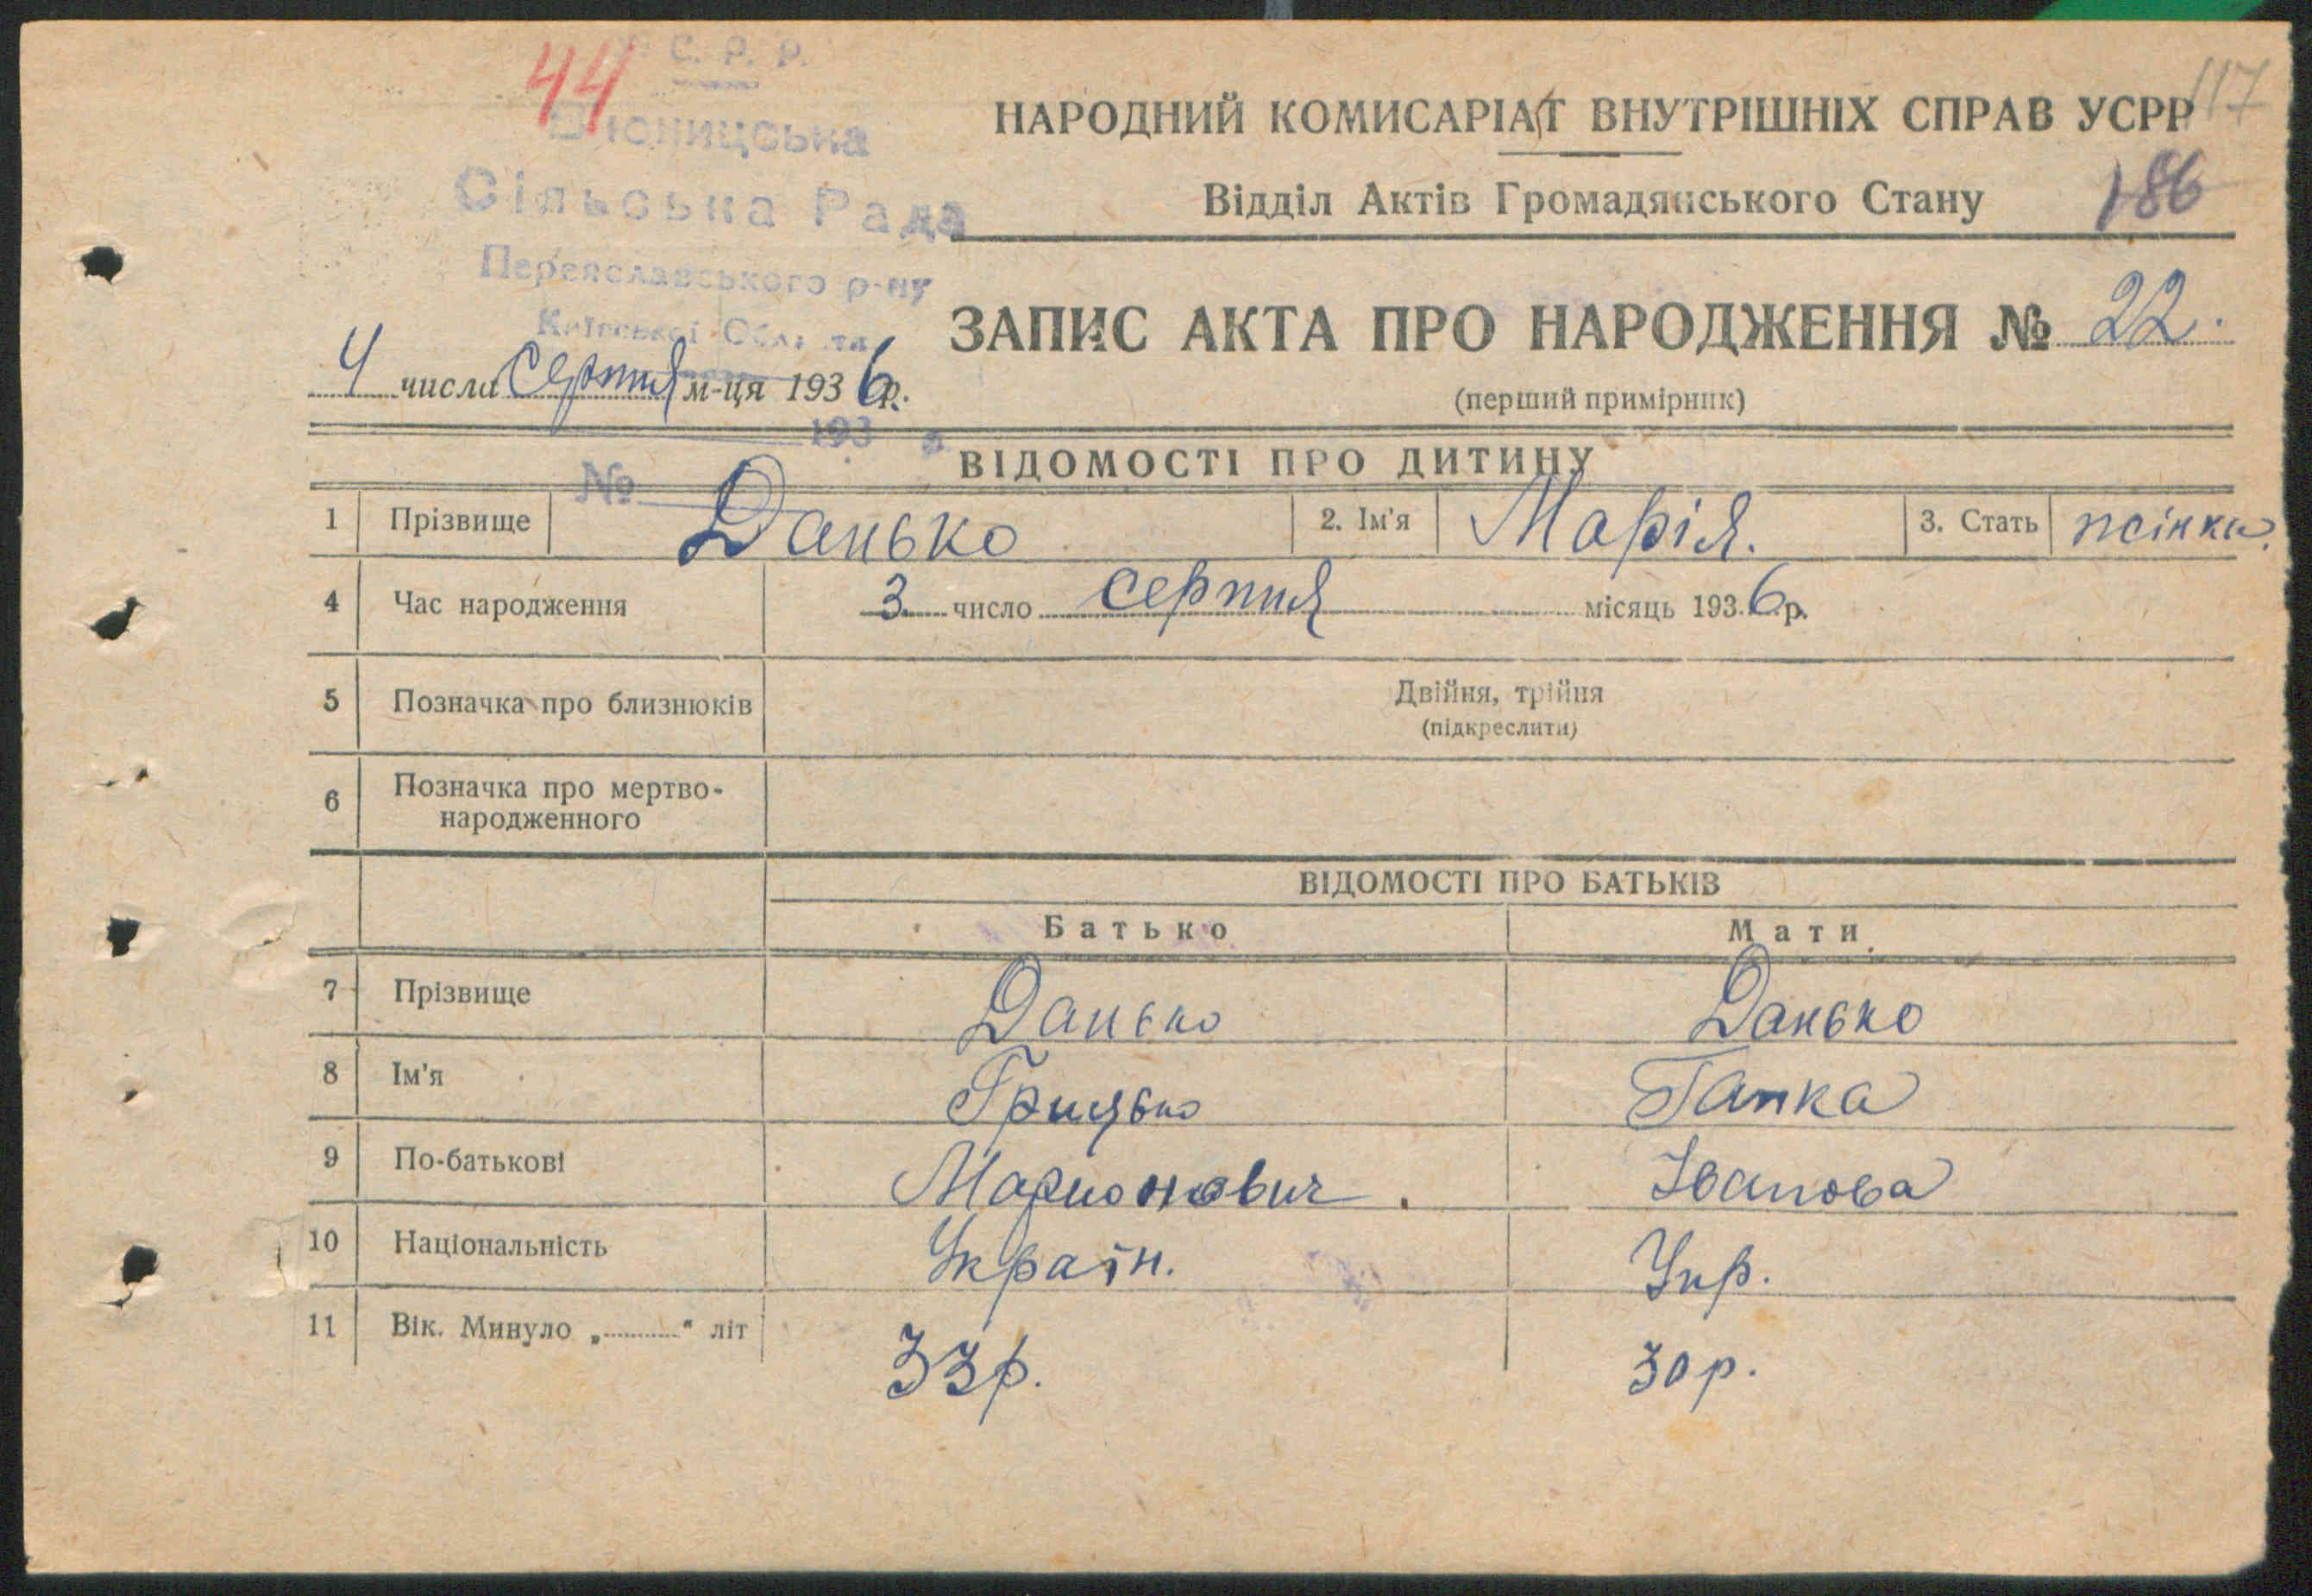 44
С. Р. Р.
Сільська Рада
Переяславського р-ну
Київської
193
№
117
НАРОДНИЙ КОМИСАРІАТ ВНУТРІШНІХ СПРАВ УСРР
Відділ Актів Громадянського Стану 186
ЗАПИС АКТА ПРО НАРОДЖЕННЯ № 22.
4 числа серпня м-ця 1936 р.
(перший примірник)
ВІДОМОСТІ ПРО ДИТИНУ
1 Прізвище Данько 2. Ім'я Марія. 3. Стать жінки.
4 Час народження 3 число серпня місяць 1936 р.
5 Позначка про близнюків Двійня, трійня
(підкреслити)
6 Позначка про мертво-
народженного
ВІДОМОСТІ ПРО БАТЬКІВ
Батько Мати
7 Прізвище Данько Данько
8 Ім'я Грицько Гапка
9 По-батькові Марионович. Іванова
10 Національність Україн. Укр.
11 Вік. Минуло „ " літ 33р. 30р.